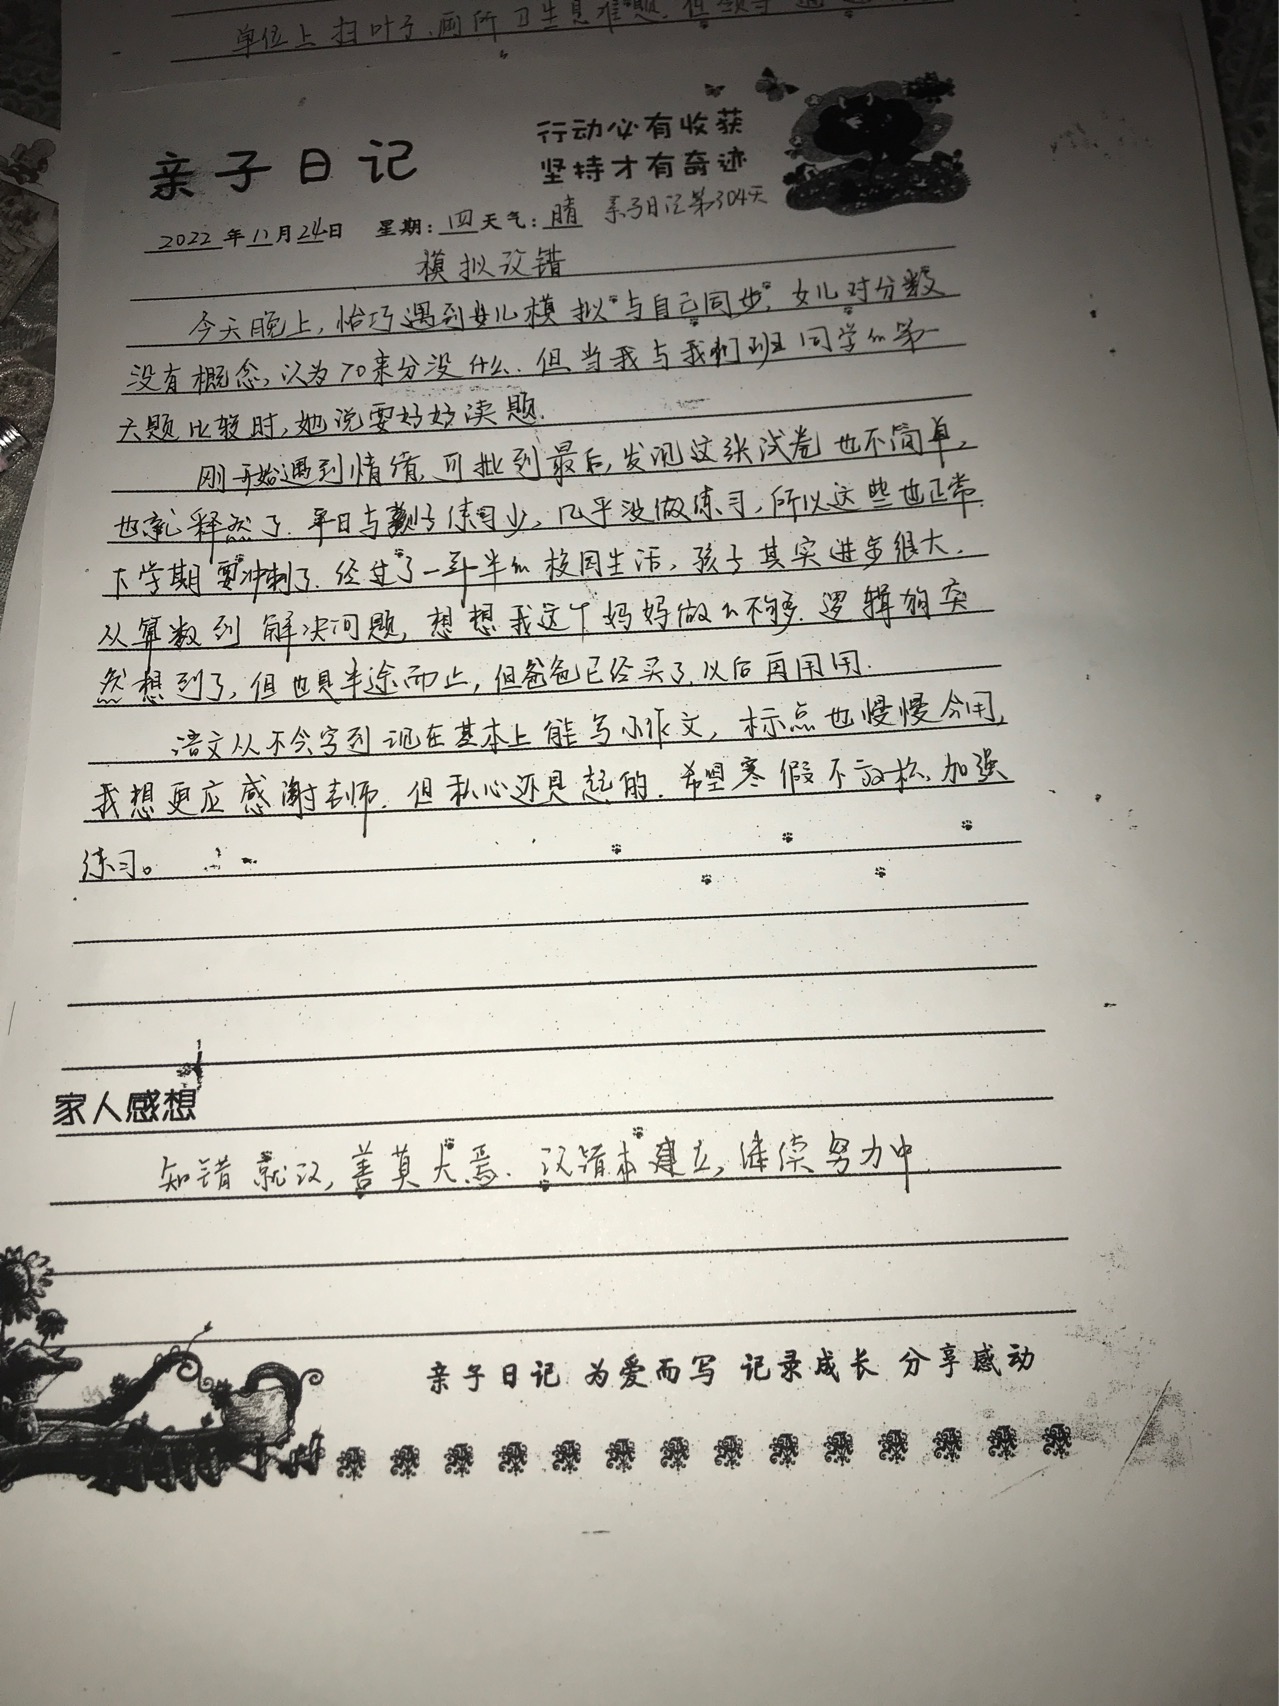 单位上扫叶子、厕所卫生是难题,但领导
行动必有收获
亲子日记
坚持才有奇迹
2022年11月24日 星期:四 天气:晴 亲子日记第304天
模拟改错
今天晚上,恰巧遇到女儿模拟与自己同步,女儿对分数
没有概念,以为70来分没什么.但当我与我们班同学的第一
大题比较时,她说要好好读题.
刚开始遇到情绪,可批到最后,发现这张试卷也不简单,
也就释然了.平日与孩子练习少,几乎没做练习,所以这些也正常.
下学期要冲刺了.经过了一年半的校园生活,孩子其实进步很大.
从算数到解决问题,想想我这个妈妈做的不够.逻辑狗突
然想到了,但也是半途而止,但爸爸已经买了,以后再用用.
语文从不会写到现在基本上能写小作文,标点也慢慢会用,
我想更应感谢老师.但私心还是起的.希望寒假不放松,加强
练习。
家人感想
知错就改,善莫大焉.改错本建立,继续努力中.
亲子日记 为爱而写 记录成长 分享感动